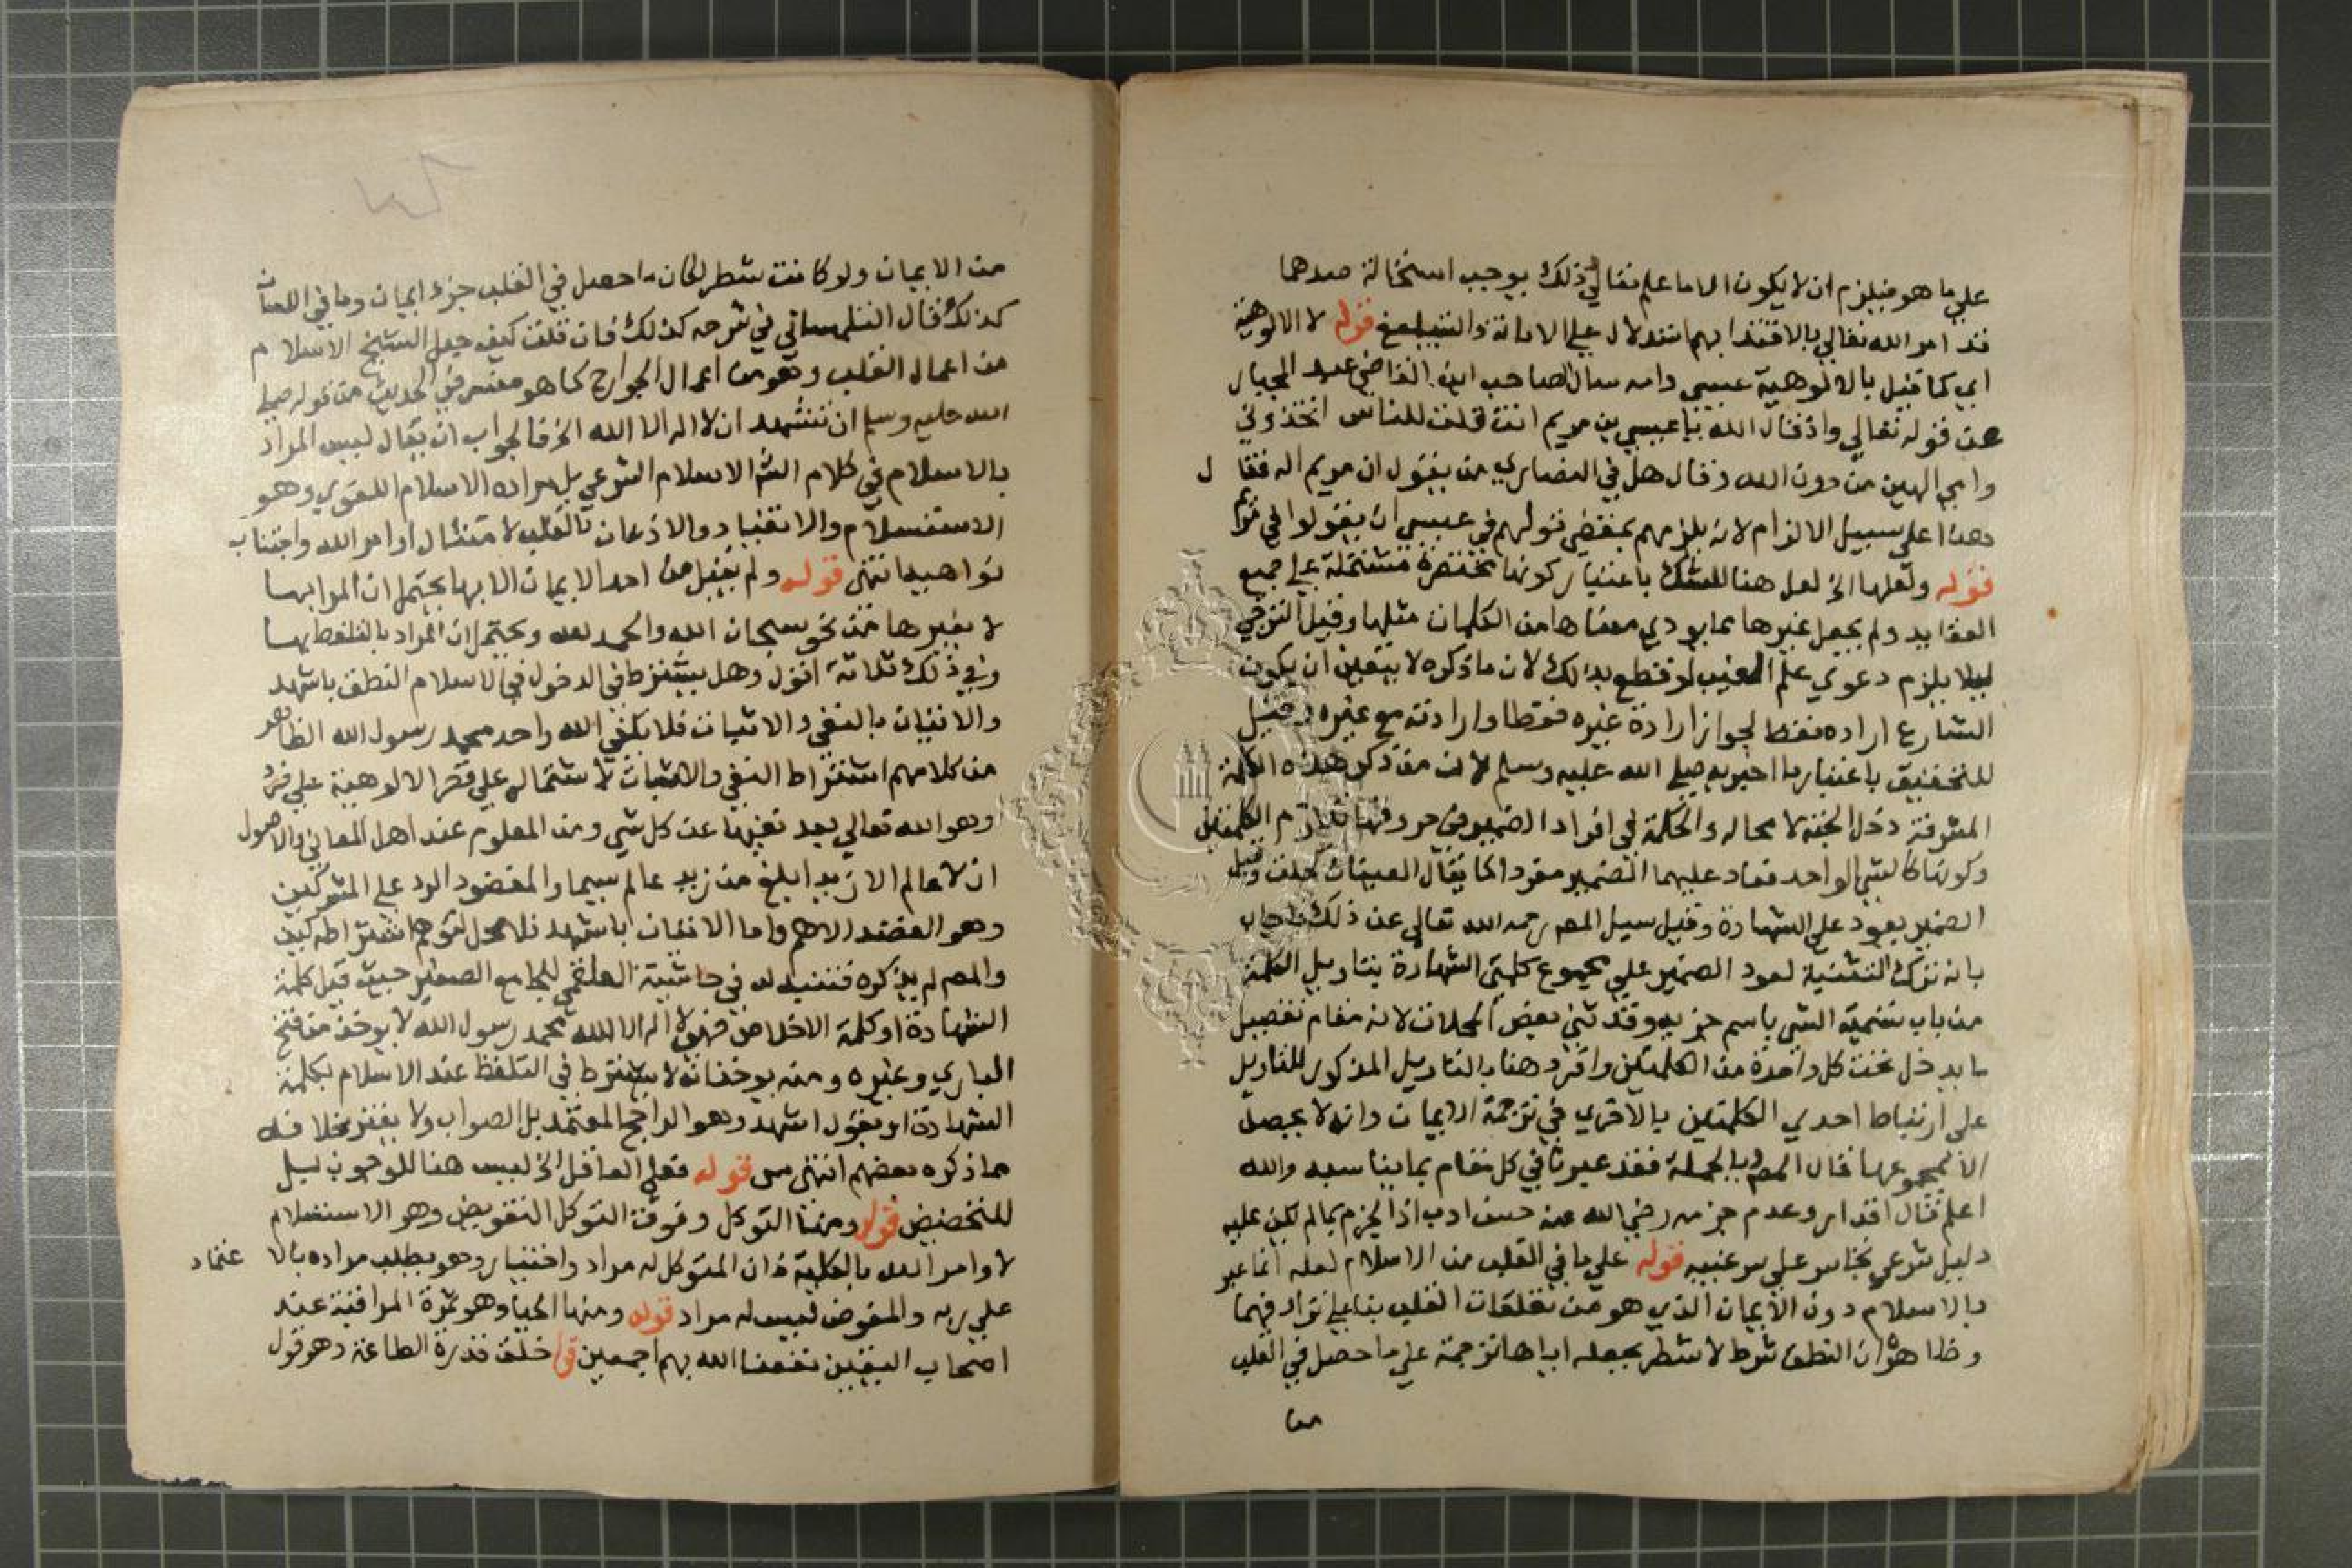 على ما هو فيلزم ان لا يكون الها ما علم تعالى ذلك يوجب استحالة صدهما
قد امر الله تعالى بالاقتدا بهم استدلال على الامانة والتبليغ قوله لا الالوهية
اي كما قيل بالالوهية عيسى وامه سال الصاحب ابن القاضي عبد
عن قوله تعالى واذ قال الله يا عيسى بن مريم انت قلت للناس اتخذوني
وامي الهين من دون الله وقال هل في النصارى من يقول ان مريم اله فقال
هذا على سبيل الالزام لانه يلزمهم بمقتضى قولهم في عيسى ان يقولوا في مريم
قوله ولعلها الخ لعل هنا للشك باعتبار كونها مختصرة مشتملة على جميع
العقايد ولم يجعل غيرها مما يودي معناها من الكلمات مثلها وقيل الترجي
ليلا يلزم دعوي علم الغيب لو قطع بذلك لان ما ذكره لا يتعين ان يكون
الشارع اراده فقط لجواز ارادة غيره فقط او ارادته مع غيره وقيل
للتحقيق باعتبار ما اخبر به صلى الله عليه وسلم لان من ذكر هذه الكلمة
المشرفة دخل الجنة لا محاله والحكمة في افراد الضمير في حروفها تلازم الكلمتين
وكونها كالشي الواحد فعاد عليهما الضمير مفردا كما يقال العينان كحلت وقيل
الضمير يعود على الشهادة وقيل سيل المص رحمه الله تعالى عن ذلك فاجاب
بانه ترك التثنية لعود الضمير على مجموع كلمتي الشهادة بتاويل الكلمة
من باب تسمية الشي باسم جزيه وقد ثني بعض المحلات لانه مقام تفصيل
ما يدخل تحت كل واحدة من الكلمتين وافرد هنا بالتاويل المذكور للتاويل
على ارتباط احدي الكلمتين بالاخري في ترجمة الايمان وانه لا يحصل
الا بمجموعها قال المص وبالجملة فقد عبرنا في كل مقام بما يناسبه والله
اعلم فقال اقداس وعدم جزمه رضي الله عنه حسن ادب اذ الجزم بما لم يكن عليه
دليل شرعي تجاسر على سر غيبه قوله على ما في القلب من الاسلام لعله انما عبر
بالاسلام دون الايمان الذي هو من تعلقات القلب بناء على ترادفهما
وظاهره ان النطق شرط لا شطر بجعله اياها ترجمة على ما حصل في القلب
من
من الايمان ولو كانت شطر لكان ما حصل في القلب جزء ايمان وما في اللسان
كذلك قال التلمساني في شرحه كذلك فان قلت كيف جعل الشيخ الاسلام
من اعمال القلب وهو من اعمال الجوارح كما هو مفسر في الحديث من قوله صلى
الله عليه وسلم ان تشهد ان لا اله الا الله الخ فالجواب ان يقال ليس المراد
بالاسلام في كلام الش الاسلام الشرعي بل مراده الاسلام اللغوي وهو
الاستسلام والانقياد والاذعان بالقلب لامتثال اوامر الله واجتناب
نواهيه انتهى قوله ولم يقبل من احد الايمان الا بها يحتمل ان المراد بها
لا بغيرها من نحو سبحان الله والحمد لله ويحتمل ان المراد بالتلفظ بها
وفي ذلك ثلاثة اقول وهل يشترط في الدخول في الاسلام النطق باشهد
والاتيان بالنفي والاثبات فلا يكفي الله واحد محمد رسول الله الظاهر
من كلامهم اشتراط النفي والاثبات لاشتماله على قصر الالوهية على فرد
وهو الله تعالى بعد نفيها عن كل شي ومن المعلوم عند اهل المعاني والاصول
ان لا عالم الا زيد ابلغ من زيد عالم سيما والمقصود الرد على المشركين
وهو القصد الاهم واما الاتيان باشهد فلا محل لتوهم اشتراطه كيف
والمص لم يذكره فتنبه له في حاشية العلقمي للجامع الصغير حيث قيل كلمة
الشهادة او كلمة الاخلاص فهو لا اله الا الله محمد رسول الله لا يوخذ من فتح
الباري وغيره ومنه يوخذ انه لا يشترط في التلفظ عند الاسلام بكلمة
الشهادة ان يقول اشهد وهو الراجح المعتمد بل الصواب ولا يغتر بخلافه
مما ذكره بعضهم انتهى من قوله فعلى العاقل الخ ليس هنا للوجوب بل
للتحضيض قوله ومنها التوكل وفوقه التوكل التفويض وهو الاستسلام
لاوامر الله بالكلية فان المتوكل له مراد واختيار وهو يطلب مراده بالاعتماد
على ربه والمفوض ليس له مراد قوله ومنها الحيا وهو ثمرة المراقبة عند
اصحاب اليقين نفعنا الله بهم اجمعين قوله خلق قدرة الطاعة وهو قول